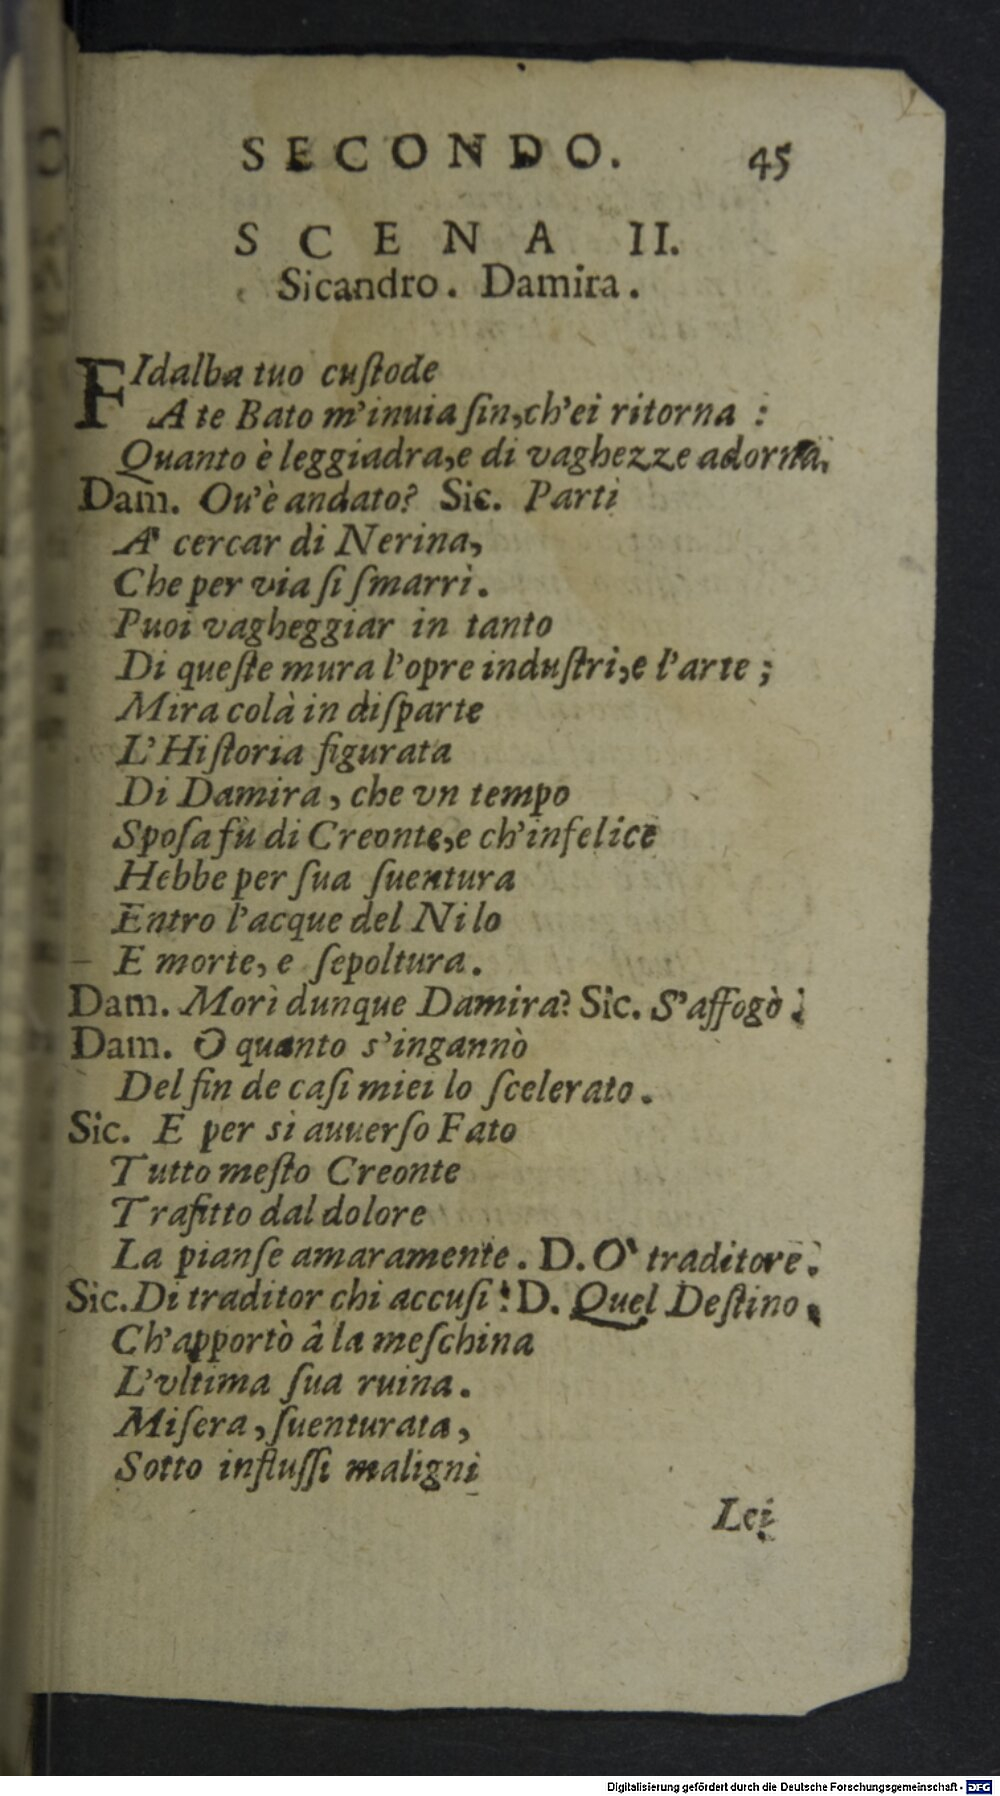 SECONDO. 45
SCENA II.
Sicandro. Damira.
FIdalba tuo cuſtode
A te Bato m'inuia ſin, ch'ei ritorna :
Quanto è leggiadra, e di vaghezze adorna.
Dam. Ou'è andato? Sic. Partì
A' cercar di Nerina,
Che per via ſi ſmarrì.
Puoi vagheggiar in tanto
Di queſte mura l'opre induſtri, e l'arte ;
Mira colà in diſparte
L'Hiſtoria figurata
Di Damira, che vn tempo
Spoſa fù di Creonte, e ch'infelice
Hebbe per ſua ſuentura
Entro l'acque del Nilo
E morte, e ſepoltura.
Dam. Morì dunque Damira? Sic. S'affogò.
Dam. O quanto s'ingannò
Del fin de caſi miei lo ſcelerato.
Sic. E per sì auuerſo Fato
Tutto meſto Creonte
Trafitto dal dolore
La pianſe amaramente. D. O' traditore.
Sic. Di traditor chi accuſi? D. Quel Deſtino,
Ch'apportò â la meſchina
L'vltima ſua ruina.
Miſera, ſuenturata,
Sotto influſſi maligni
Lei
Digitalisierung gefördert durch die Deutsche Forschungsgemeinschaft - DFG